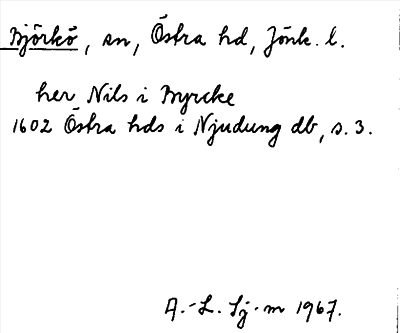 Björkö, sn, Östra hd, Jönk. l.
her Nils i Byrcke
1602 Östra hds i Njudung db, s. 3.
A.-L. Sj-m 1967.